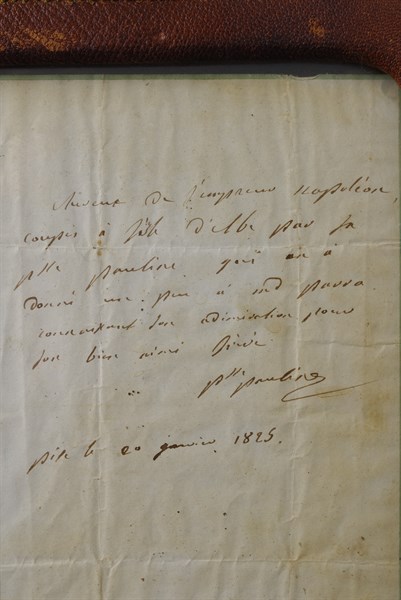 cheveux de l'empereur napoléon,
coupés à l'isle d'Elbe par la
p^sse pauline qui en a
donné un peu à md
connaissant son admiration pour
son bien aimé frère
p^sse pauline
pise le 20 janvier 1825.